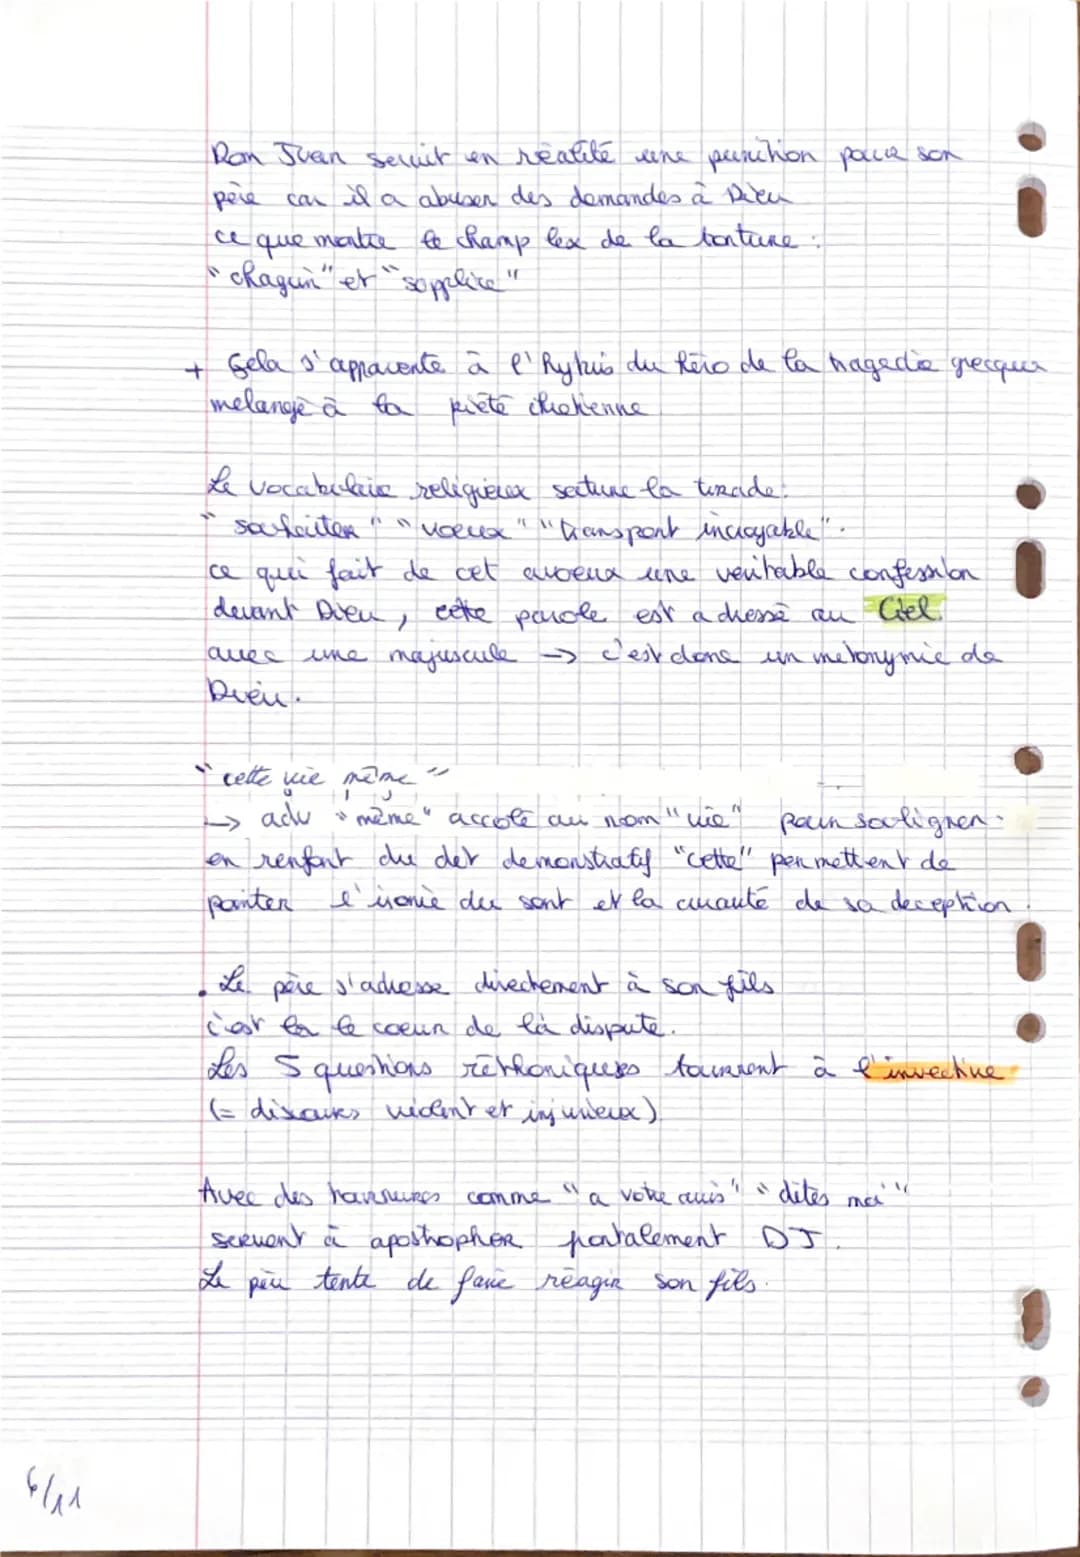 Dom Juan serait en réalité une punition pour son
père car il a abuser des demandes à Dieu
ce que montre le champ lex de la torture :
"chagrin" et "sopplice"
+ Cela s'apparente à l'Hybris du héro de la tragedie grecque
melangé à la piété chretienne
Le vocabulaire religieux sature la tirade:
"souhaiter" "voeux" "transport incroyable".
ce qui fait de cet aveux une véritable confession
devant Dieu, cette parole est adressé au Ciel
avec une majuscule → c'est donc un metonymie de
Dieu.
"cette vie même"
↳ adv "même" accolé au nom "vie" pour souligner.
en renfort du det demonstratif "cette" permettent de
pointer l'ironie du sort et la cruauté de sa deception.
. Le père s'adresse directement à son fils
c'est là le coeur de la dispute.
Les 5 questions réthoriques tournent à l'invective
(= discours violent et injurieux)
Avec des comme "a votre avis" "dites moi"
servent à apostropher DJ.
Le père tente de faire réagir son fils.
6/11